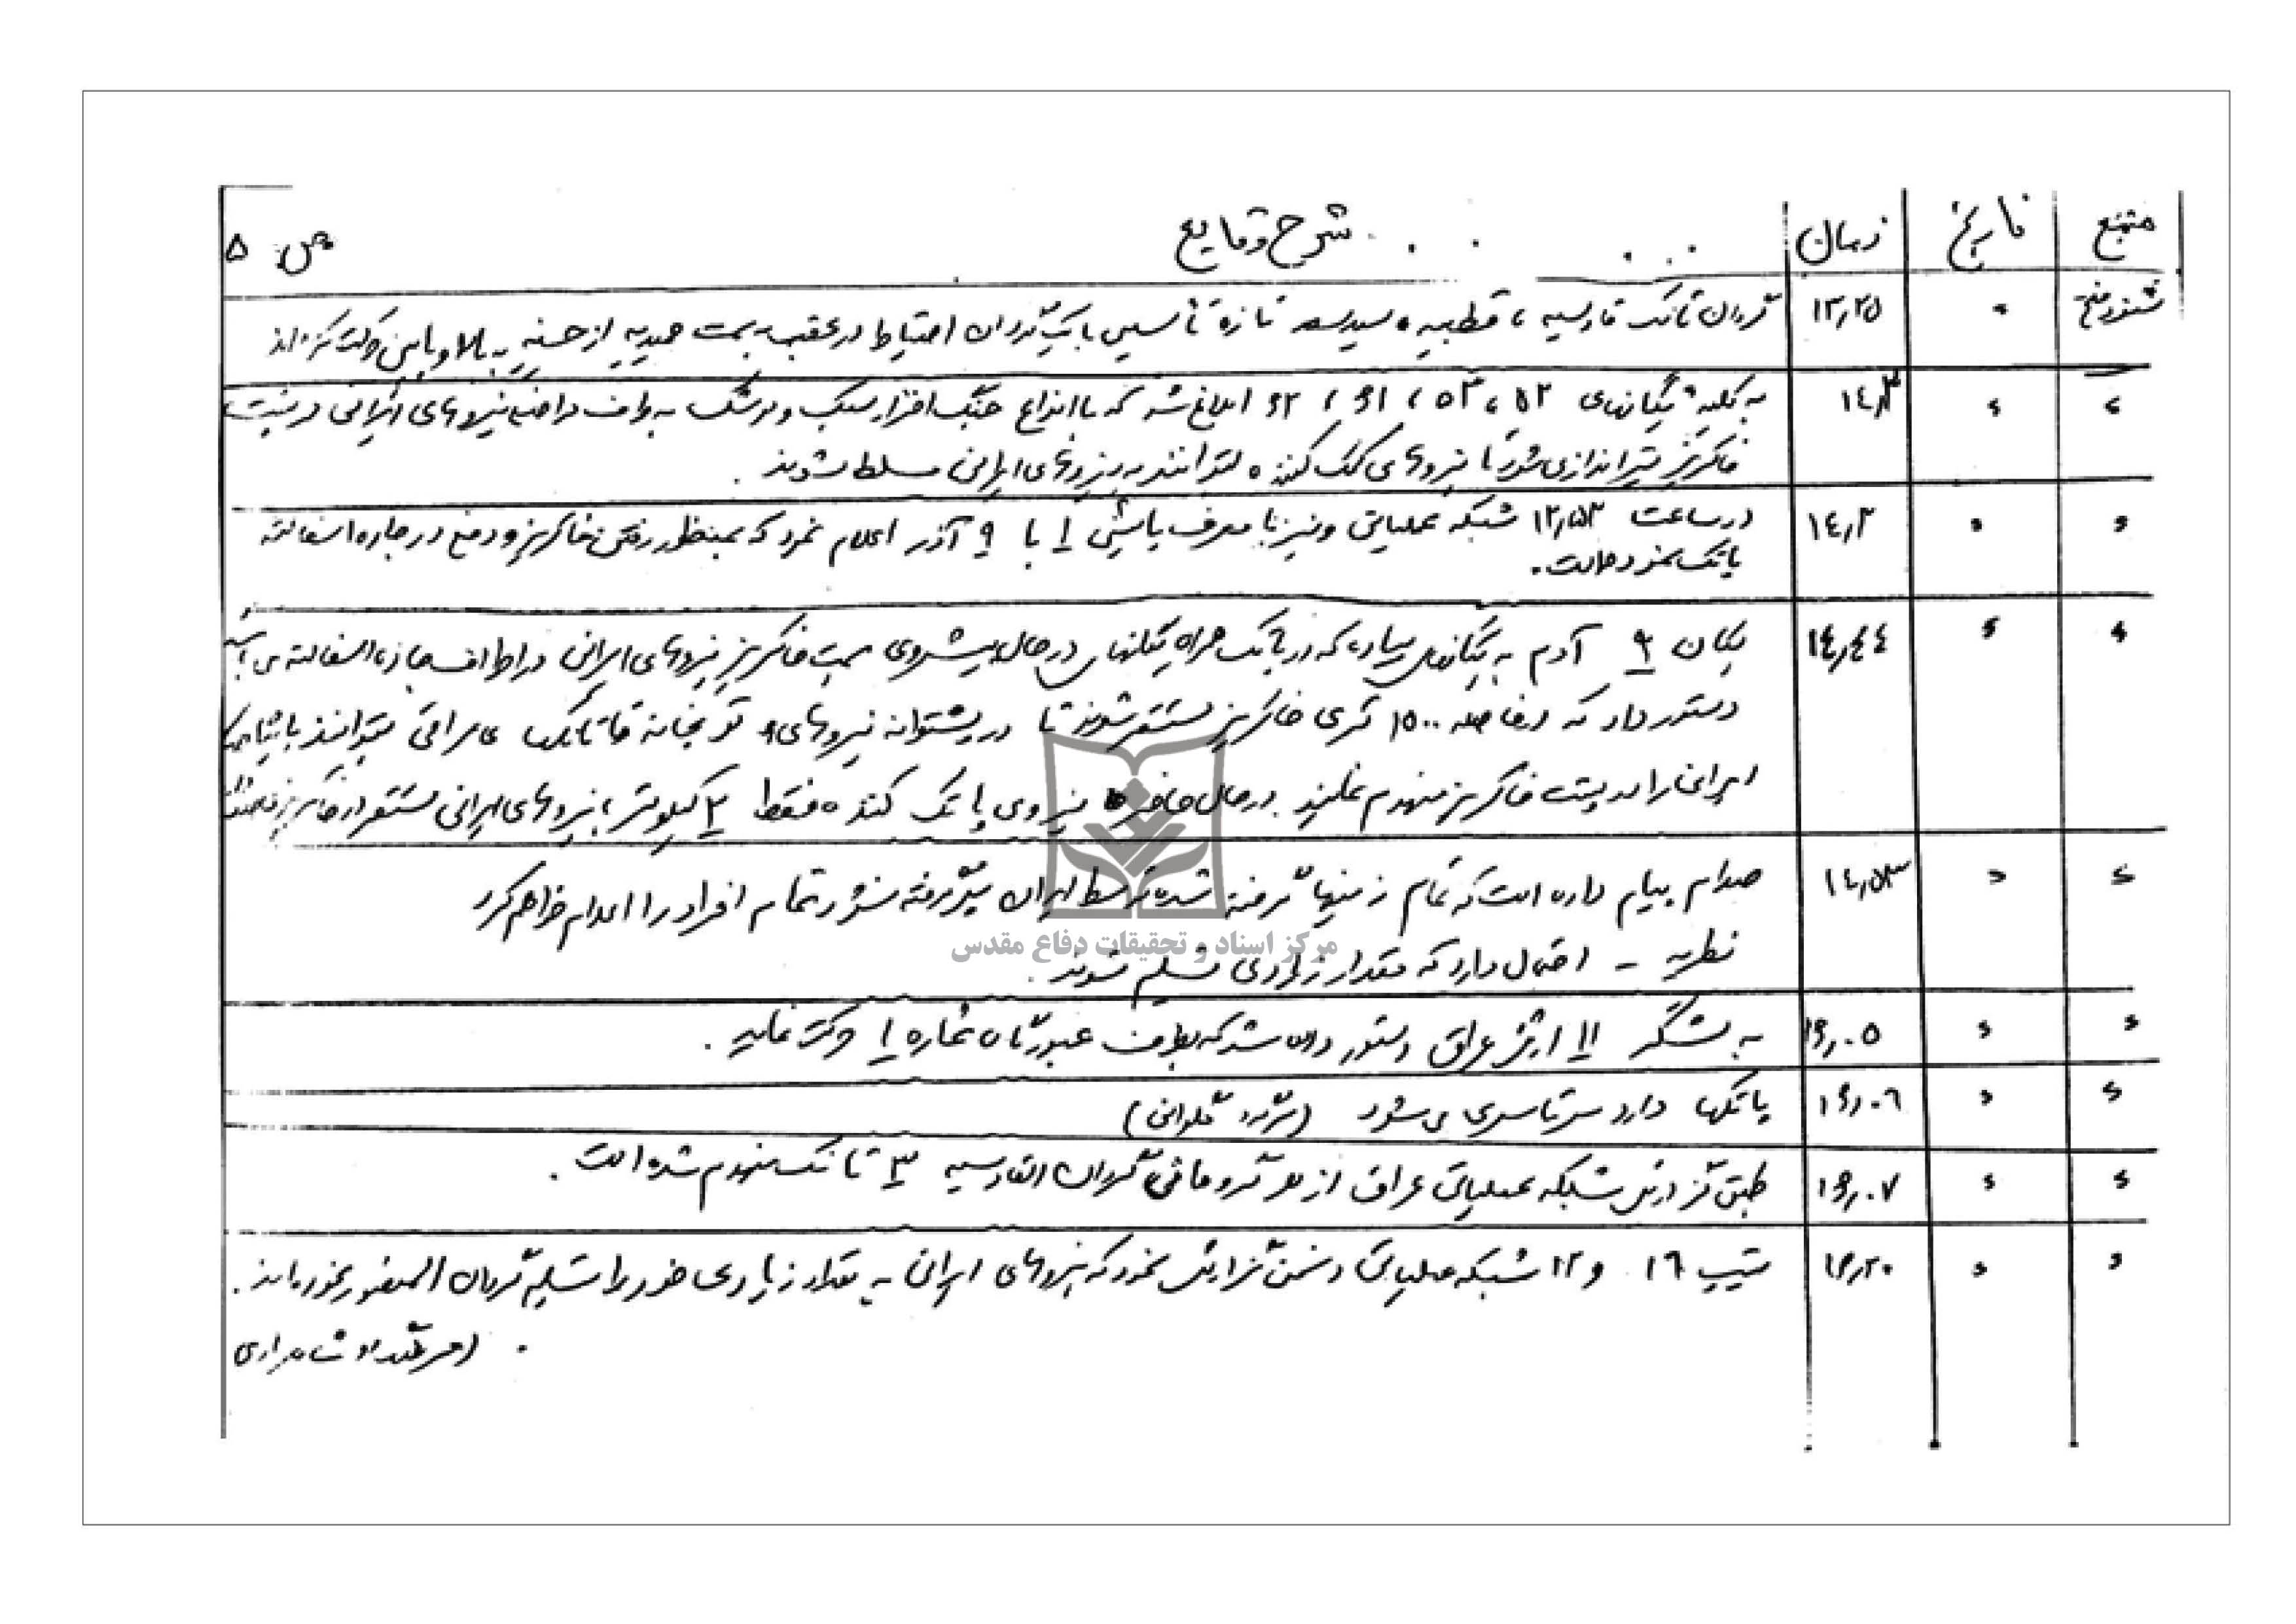 منبع تاریخ زمان شرح وقایع ص ۵
شنود فتح " ۱۳٫۲۵ گردان تانک قادسیه، قطیبه و سیدیه تازه تأسیس با یک گردان احتیاط در عقب به سمت حمیدیه از حسنیه به بالا و پایین حرکت کرده‌اند
" " به کلیه یگانهای ۵۲، ۵۳، ۶۱، ۶۲ ابلاغ شد که با انواع جنگ افزار سبک و موشک به طرف نیروهای ایرانی در پشت
خاکریز تیراندازی شود تا نیروهای کمک کننده بتوانند به نیروهای ایرانی مسلط شوند.
" " ۱۴٫۲ در ساعت ۱۳٫۵۳ شبکه عملیاتی ونیز با معرف ۱ با ۹ آذر اعلام نمود که بمنظور خاکریز و دفع در جاده اسفالته
پاتک نموده است.
" " ۱٤٫٤٤ یگان ۹ آدم به یگانهای پیاده که در پاتک همراه یگانهای در حال پیشروی بسمت خاکریز نیروهای ایرانی در اطراف جاده اسفالته می
دستور داد که بفاصله ۱۵۰۰ متری خاکریز مستقر شوند تا در پشتوانه نیروهای توپخانه تا تانک های عراقی بتوانند
ایرانی را در پشت خاکریز منهدم نمایند. در حال حاضر نیروی پاتک کننده فقط ۲ کیلومتر با نیروهای ایرانی مستقر در خاکریز
" " ۱٤٫۵۳ صدام پیام داده است که تمام زمینها گرفته شده توسط ایران پس گرفته نشود تمام افراد را اعدام خواهم کرد
نظریه - احتمال دارد که مقدار زیادی تسلیم شوند.
" " ۱۶٫۰۵ به لشگر ۱۱ ارتش عراق دستور داده شد که بطرف عبورگاه شماره ۱ حرکت نماید.
" " ۱۶٫۰٦ پاتکها دارد سرتاسری می‌شود
" " ۱۶٫۰۷ طبق گزارش شبکه عملیاتی عراق از گردان القادسیه ۳ تانک منهدم شده است.
" " ۱۶٫۲۰ تیپ ۱٦ و ۲۲ شبکه عملیاتی دشمن گزارش نمود که نیروهای ایرانی به مقدار زیادی خود را تسلیم گردان المنصور نموده‌اند.
مرکز اسناد و تحقیقات دفاع مقدس